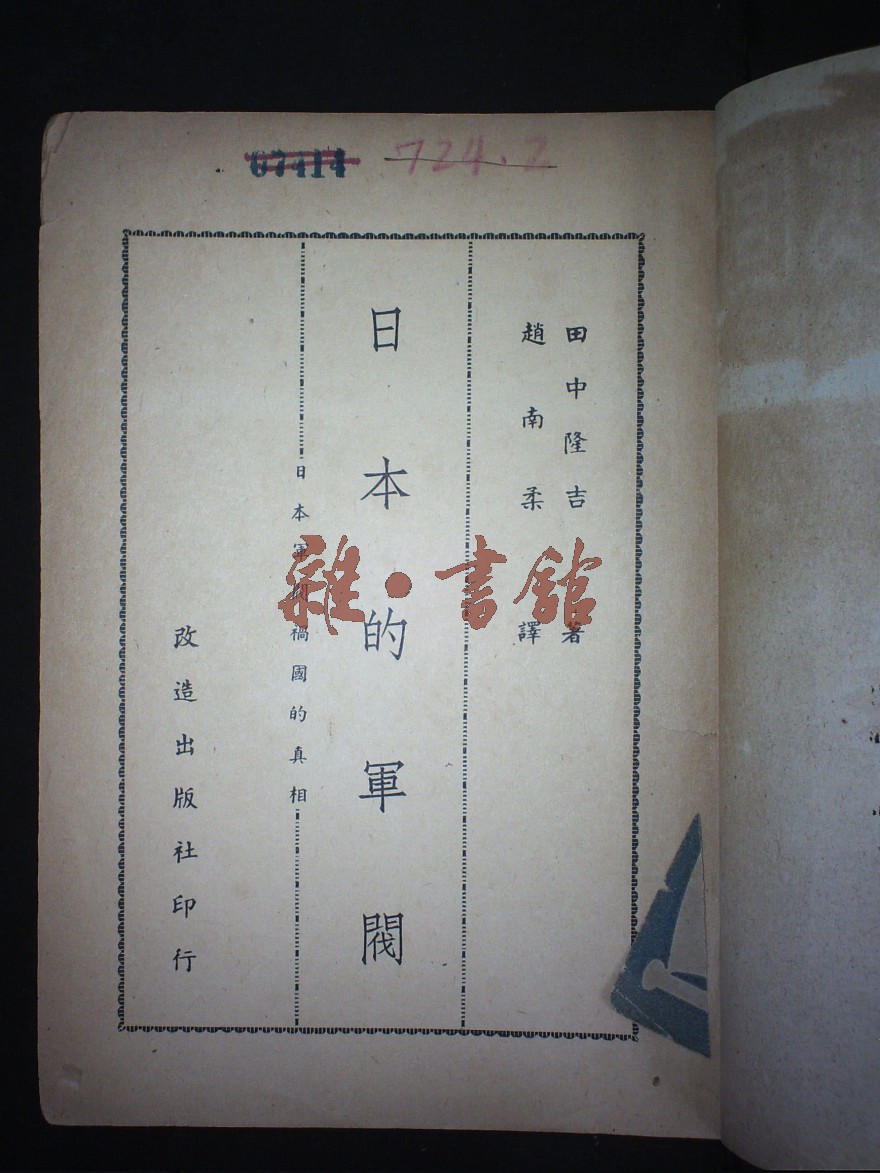 67414 724.2
田中隆吉 著
趙南柔 譯
日本的軍閥
日本軍閥禍國的真相
改造出版社印行
雜·書館